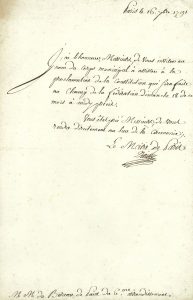 Paris le 16 7bre 1791
J'ai l'honneur, Messieurs, de vous inviter au
nom du Corps municipal à assister à la
proclamation de la Constitution qui sera faite
au Champ de la fédération dimanche 18 de ce
mois à midi précis.
Messieurs, de vous
rendre directement au lieu de la cérémonie.
Le Maire de Paris
M. M. du Bureau de Paix du 6me arrondissement